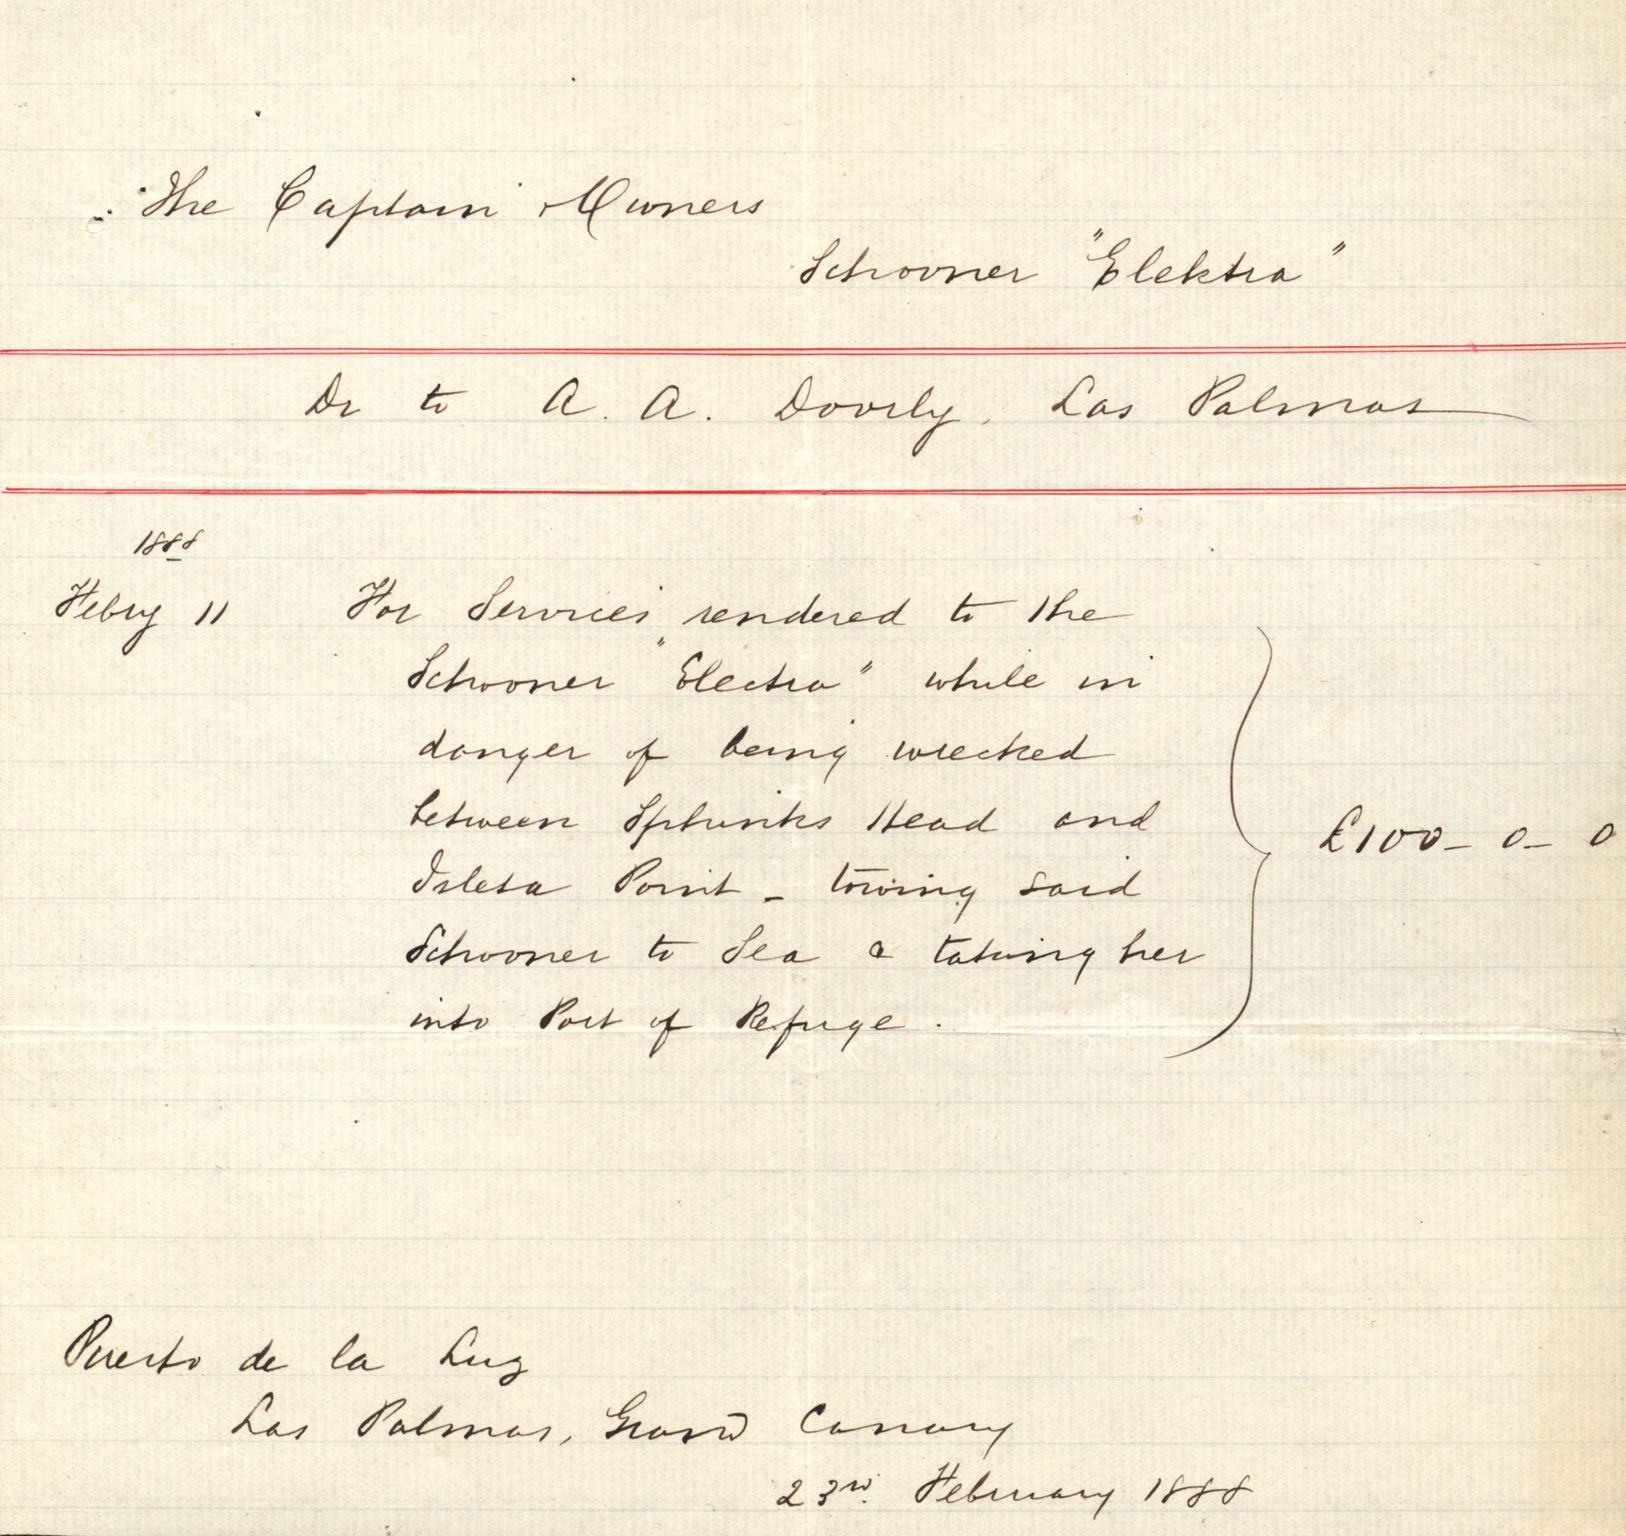 The Captain & Owners
Schooner "Elektra"
Dr to A. A. Doorly, Las Palmas
1888
Febry 11 For Services rendered to the
Schooner "Electra" while in
danger of being wrecked
between Sphinks Head and
Isleta Point - towing said
Schooner to Sea & taking her
into Port of Refuge.
£100 - 0 - 0
Puerto de la Luz
Las Palmas, Grand Canary
23rd. February 1888